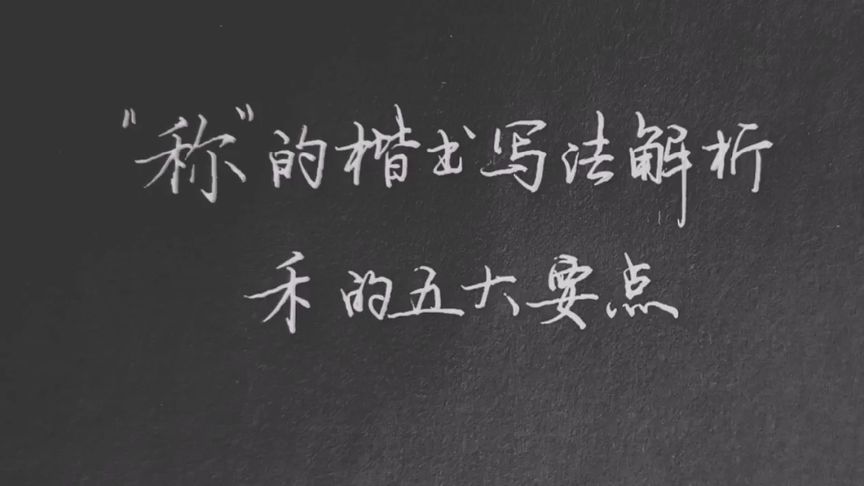 “称”的楷书写法解析
禾的五大要点